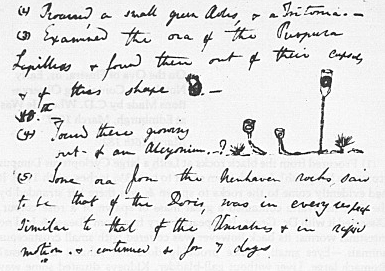 (2) Procured a small green Aeolis, & a Tritonia. —
(3) Examined the ova of the Purpura
Lapillus & found them out of their capsules
& of this shape —
(4) Found these growing
out of an Alcyonium. —?
(5) Some ova from the Newhaven rocks, said
to be that of the Doris, was in every respect
similar to that of the Univalves & in rapid
motion, & continued so for 7 days